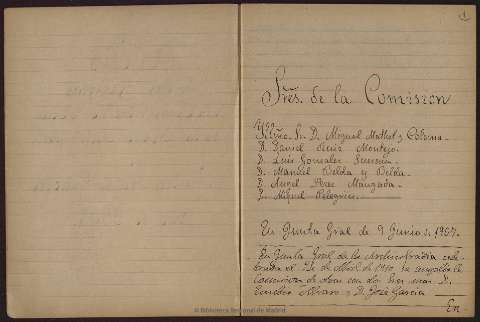 1
Sres. de la Comision
D. Miguel Mathet y Coloma.
D. Daniel Montejo.
D. Luis Gonzalez
D. Manuel Belda y Belda.
D. Angel Perez Manzada.
D. Miguel
En Junta Gral de 9 Junio de 1907.
En Junta Gral de la Archicofradia cele-
brada el de Abril de 1910, se amplió la
Comision de obra con los Sres. D.
Eusebio Alvaro y D. José Garcia
En
© Biblioteca Regional de Madrid